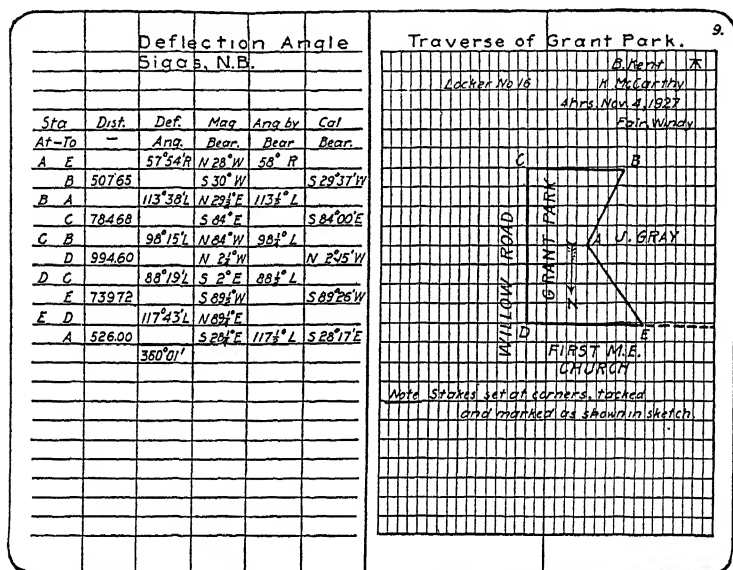 9.
Deflection Angle
Sigas, N.B.
Sta Dist. Def. Mag Ang by Cal
At-To — Ang. Bear. Bear Bear.
A E 57°54'R N 28°W 58° R
B 507.65 S 30° W S 29°37'W
B A 113°38'L N 29½°E 113½° L
C 784.68 S 84°E S 84°00'E
C B 98°15'L N 84°W 98¼° L
D 994.60 N 2¼°W N 2°15'W
D C 88°19'L S 2°E 88½° L
E 739.72 S 89½°W S 89°26'W
E D 117°43'L N 89½°E
A 526.00 S 28¼°E 117½° L S 28°17'E
360°01'
Traverse of Grant Park.
B. Kent ⊼
Locker No 16 K McCarthy
4hrs. Nov. 4, 1927
Fair, Windy
C B
WILLOW ROAD
GRANT PARK
A J. GRAY
N
D E
FIRST M.E.
CHURCH
Note Stakes set at corners, tacked
and marked as shown in sketch.